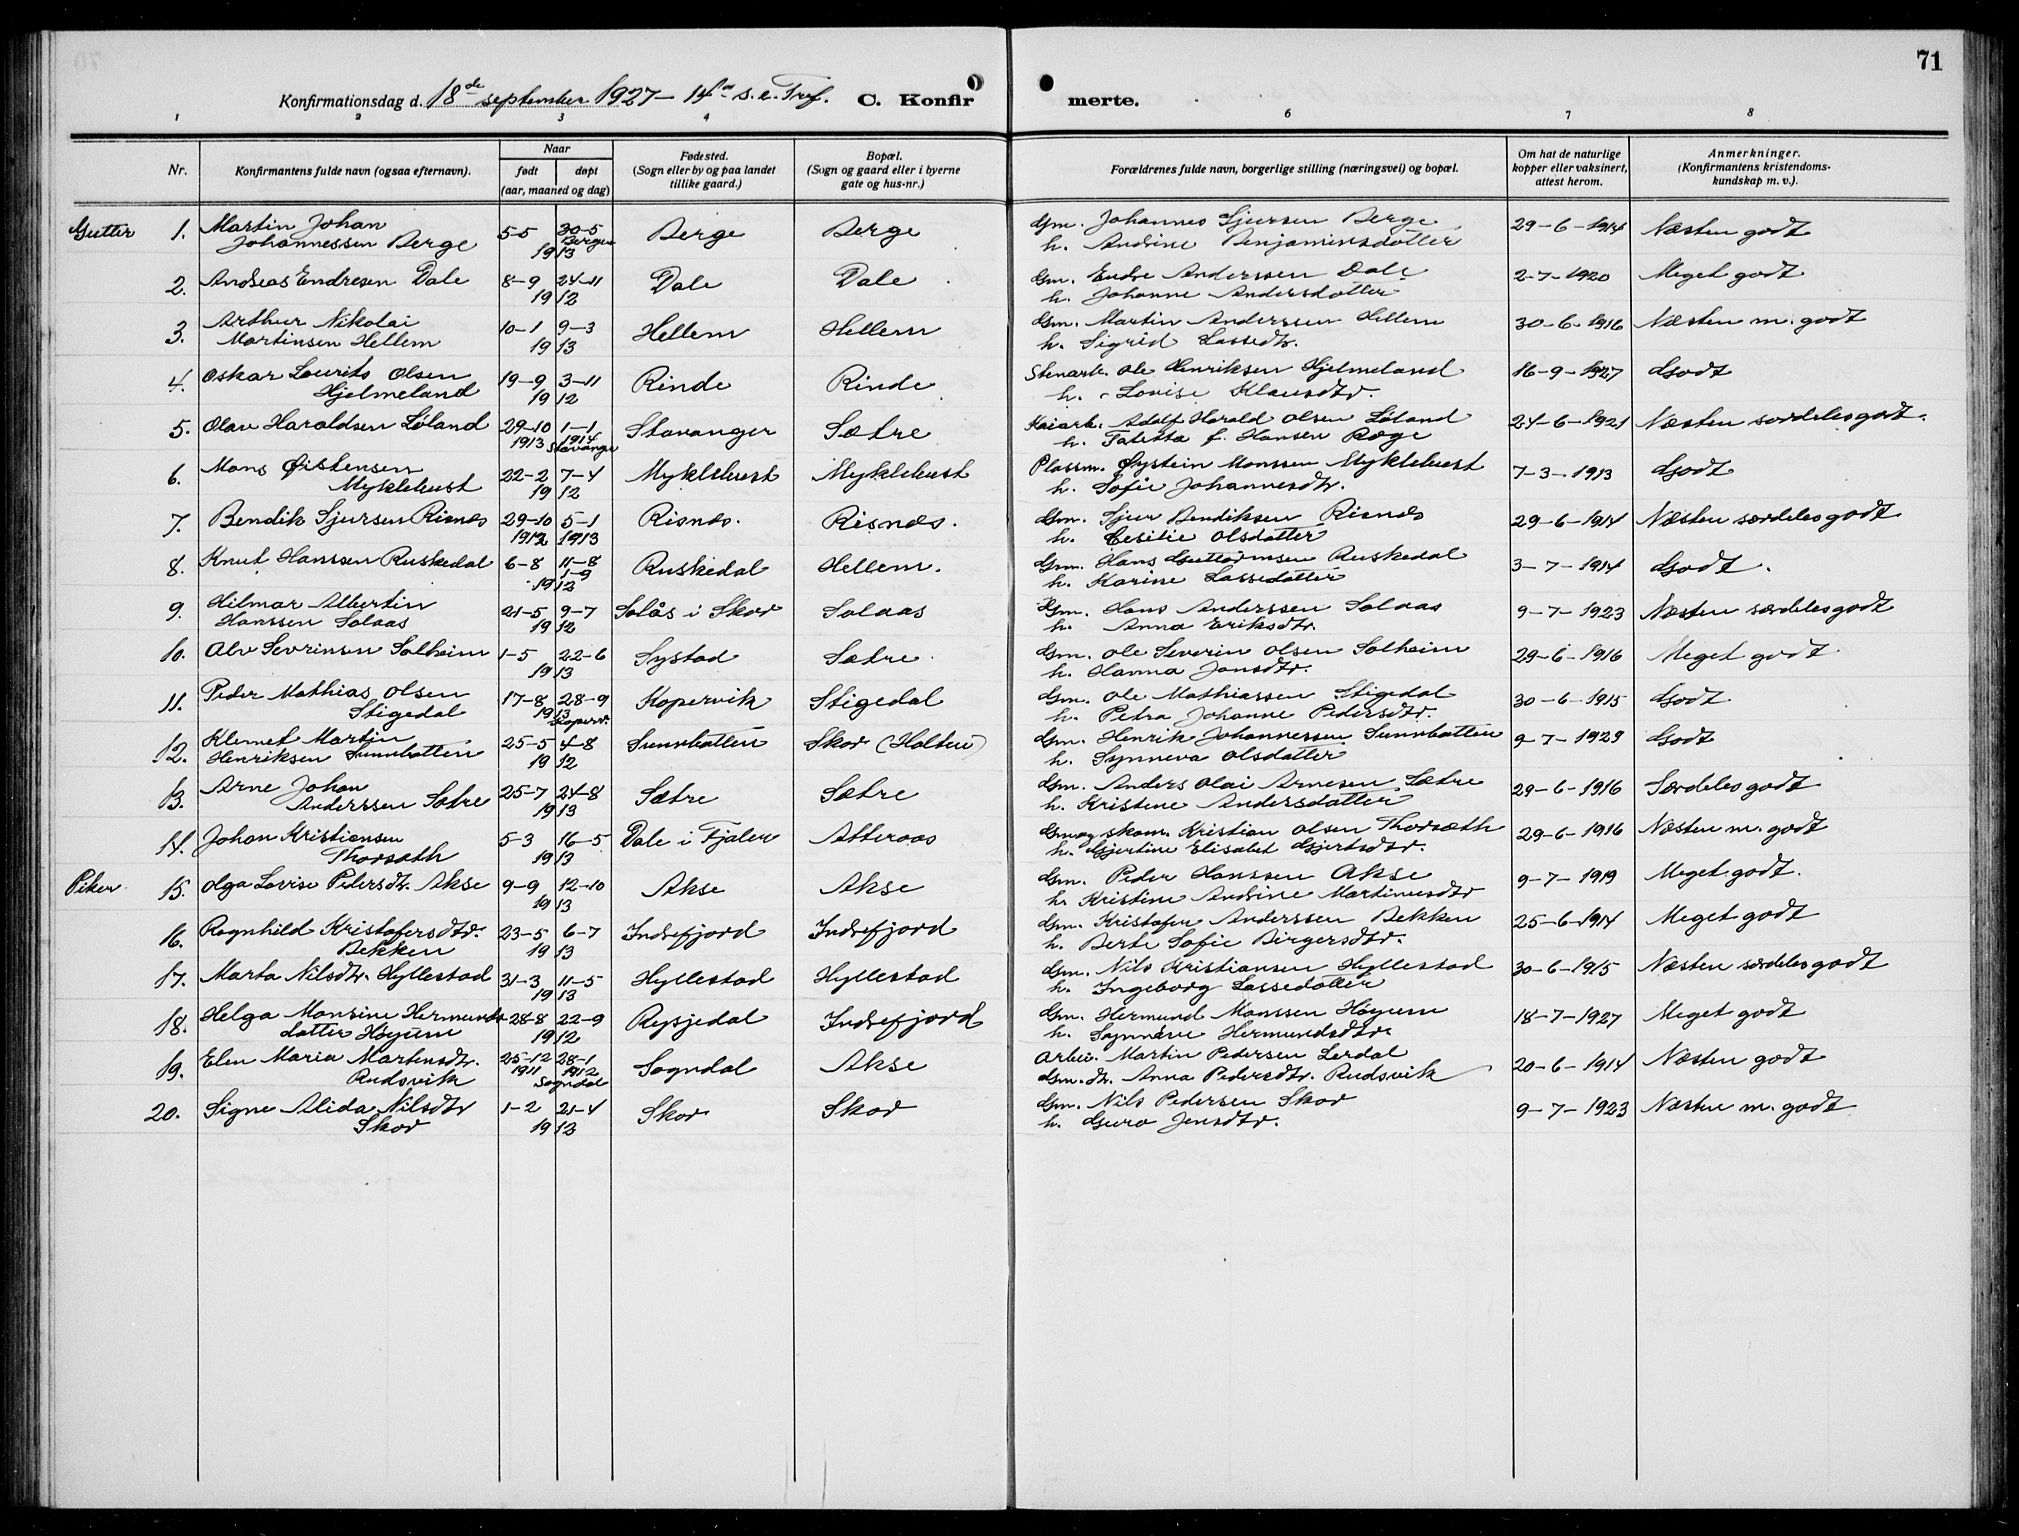 71
Konfirmationsdag d. 18de september 1927 – 14de s. e. Tref. C. Konfirmerte.
1 2 3 4 6 7 8
Nr. Konfirmantens fulde navn (ogsaa efternavn). Naar født døpt (aar, maaned og dag) Fødested. (Sogn eller by og paa landet tillike gaard.) Bopæl. (Sogn og gaard eller i byerne gate og hus-nr.) Forældrenes fulde navn, borgerlige stilling (næringsvei) og bopæl. Om hat de naturlige kopper eller vaksinert, attest herom. Anmerkninger. (Konfirmantens kristendomskundskap m. v.).
Gutter 1. Martin Johan Johannessen Berge 5-5 30-5 Bergen 1913 Berge Berge Gm. Johannes Sjursen Berge h. Andrine Benjaminsdotter 29-6-1914 Næsten godt
2. Andreas Endresen Dale 8-9 24-11 1912 Dale Dale Gm. Endre Anderssen Dale h. Johanne Andersdotter 2-7-1920 Meget godt
3. Arthur Nikolai Martinsen Hellem 10-1 9-3 1913 Hellem Hellem Gm. Martin Anderssen Hellem h. Sigrid Lassedtr. 30-6-1916 Næsten m. godt
4. Oskar Lourits Olsen Hjelmeland 19-9 3-11 1912 Rinde Rinde Stenarb. Ole Henriksen Hjelmeland h. Lovise Klausdtr. 16-9-1927 Godt
5. Olav Haraldsen Løland 29-10 1913 1-1 1914 Stavanger Stavanger Sætre Kaiarb. Adolf Harald Olsen Løland h. f. Hansen Røge 24-6-1921 Næsten særdeles godt.
6. Mons Øistensen Myklebust 22-2 7-4 1912 Myklebust Myklebust Plassm. Øystein Monssen Myklebust h. Sofie Johannesdtr. 7-3-1913 Godt
7. Bendik Sjursen Risnes 29-10 1912 5-1 1913 Risnes. Risnes. Gm. Sjur Bendiksen Risnes h. Cesilie Olsdotter 29-6-1914 Næsten særdeles godt
8. Knut Hanssen Ruskedal 6-8 11-8 1-9 1912 Ruskedal Hellem. Gm. Hans Guttormsen Ruskedal h. Karine Lassedotter 3-7-1914 Godt.
9. Hilmar Albertin Hanssen Solaas 21-5 9-7 1912 Solås i Skor Solaas Gm. Hans Anderssen Solaas h. Anna Eriksdtr. 9-7-1923 Næsten særdeles godt
10. Alv Sevrinsen Solheim 1-5 22-6 1913 Systad Sætre. Gm. Ole Severin Olsen Solheim h. Hanna Jonsdtr. 29-6-1916 Meget godt
11. Peder Mathias Olsen Stigedal 17-8 28-9 1913 Koperv. Kopervik Stigedal Gm. Ole Mathiassen Stigedal h. Petra Johanne Pedersdtr. 30-6-1915 Godt
12. Klemet Martin Henriksen Sunnbotten 25-5 4-8 1912 Sunnbotten Skor (Holten) Gm. Henrik Johannessen Sunnbotten h. Synneva Olsdotter 9-7-1923 Godt
13. Arne Johan Anderssen Sætre 25-7 24-8 1913 Sætre Sætre Gm. Anders Olai Arnesen Sætre h. Kristine Andersdatter 29-6-1916 Særdeles godt
14. Johan Kristiansen Thorsæth 5-3 16-5 1913 Dale i Fjaler Atteraas Gm. og skom. Kristian Olsen Thorsæth h. Gjertine Elisabet Gjertsdtr. 29-6-1916 Næsten m. godt
Piker 15. Olga Lovise Pedersdtr. Akse 9-9 12-10 1913 Akse Akse Gm. Peder Hanssen Akse h. Kristine Andrine Martinusdtr 9-7-1919 Meget godt.
16. Ragnhild Kristofersdtr. Bekken 23-5 6-7 1913 Indrefjord Indrefjord Gm. Kristofer Anderssen Bekken h. Berte Sofie Birgersdtr. 25-6-1914 Meget godt
17. Marta Nilsdtr. Hyllestad 31-3 11-5 1913 Hyllestad Hyllestad Gm. Nils Kristiansen Hyllestad h. Ingeborg Lassedotter 30-6-1915 Næsten særdeles godt
18. Helga Monsine Hermundsdotter Høyum 28-8 22-9 1912 Rysjedal Indrefjord Gm. Hermund Monssen Høyum h. Hermundsdtr 18-7-1927 Meget godt
19. Elen Maria Martinsdtr. Rudsvik 25-12 1911 28-1 1912 Sogndal Sogndal Akse Arbei. Martin Pedersen Lerdal Gm. dt. Anna Pedersdtr. Rudsvik 20-6-1914 Næsten godt
20. Signe Alida Nilsdtr Skor 1-2 21-4 1912 Skor Skor Gm. Nils Pedersen Skor h. Guro Jensdtr. 9-7-1923 Næsten m. godt